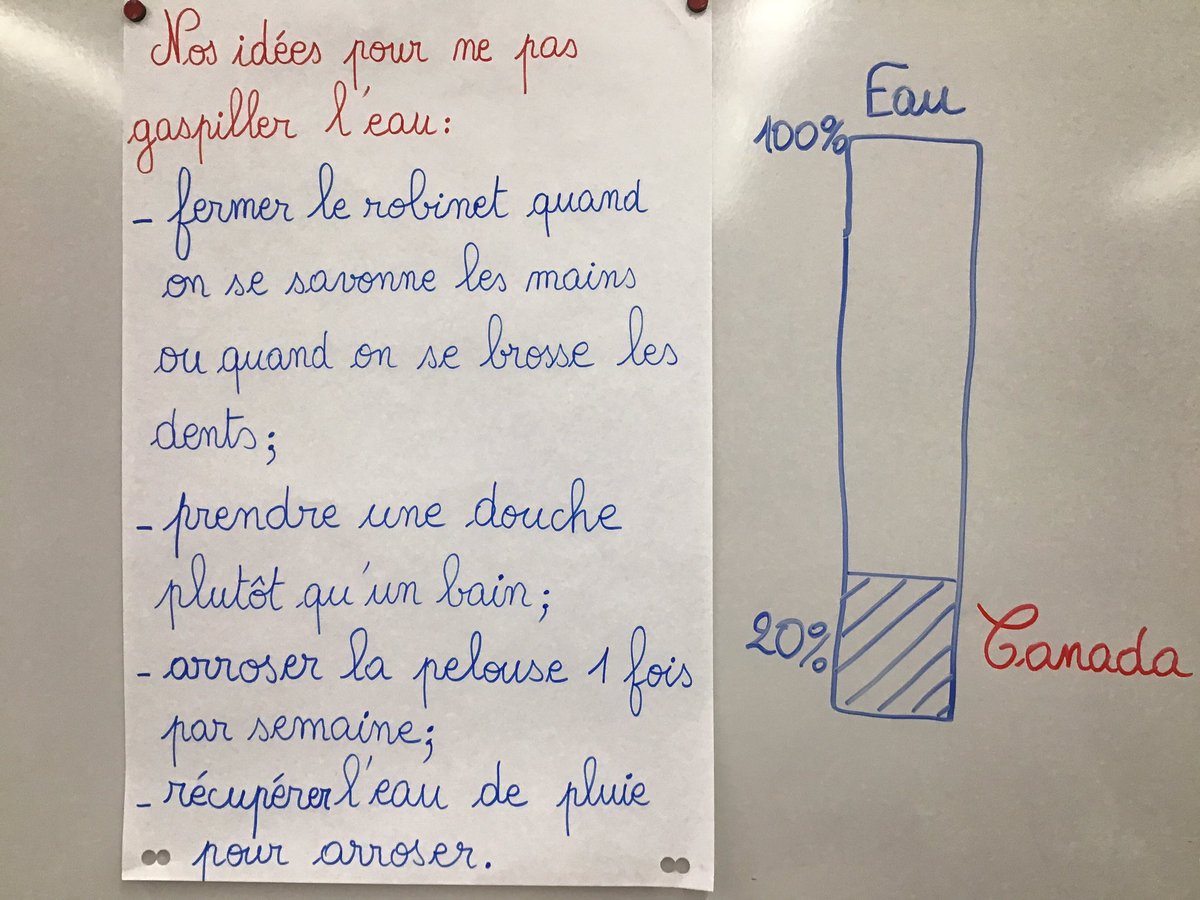 Nos idées pour ne pas
gaspiller l'eau:
- fermer le robinet quand
on se savonne les mains
ou quand on se brosse les
dents;
- prendre une douche
plutôt qu'un bain;
- arroser la pelouse 1 fois
par semaine;
- récupérer l'eau de pluie
pour arroser.
Eau
100%
20%
Canada